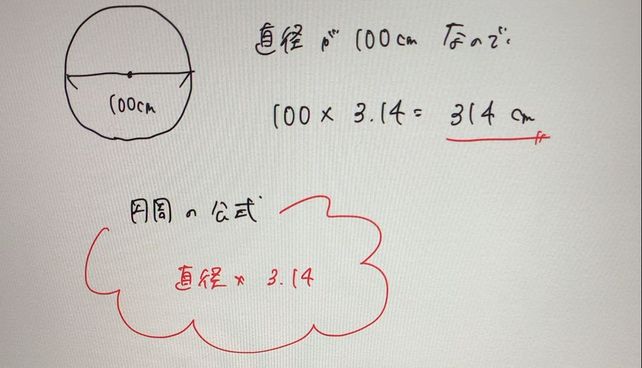 100cm
直径が100cmなので
100 × 3.14 = 314 cm
円周の公式
直径 × 3.14